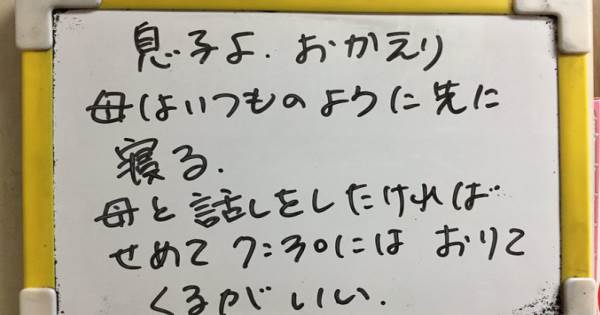 息子よ.おかえり
母はいつものように先に
寝る.
母と話しをしたければ
せめて 7:30には おりて
くるがいい.